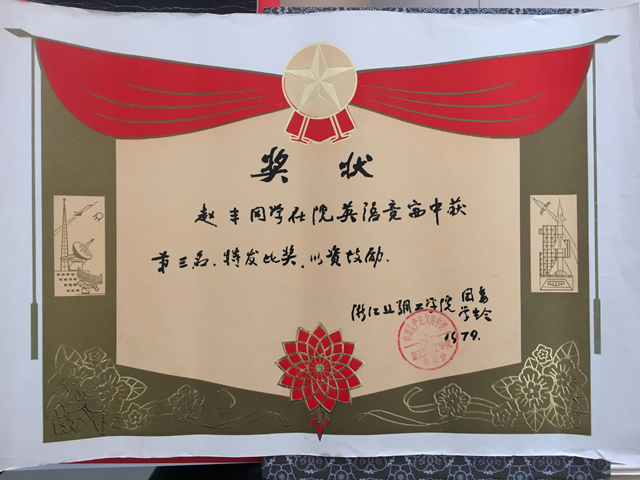 奖状
赵丰同学在院英语竞赛中获
第三名、特发此奖,以资鼓励.
浙江丝绸工学院 团委
学生会
1979.